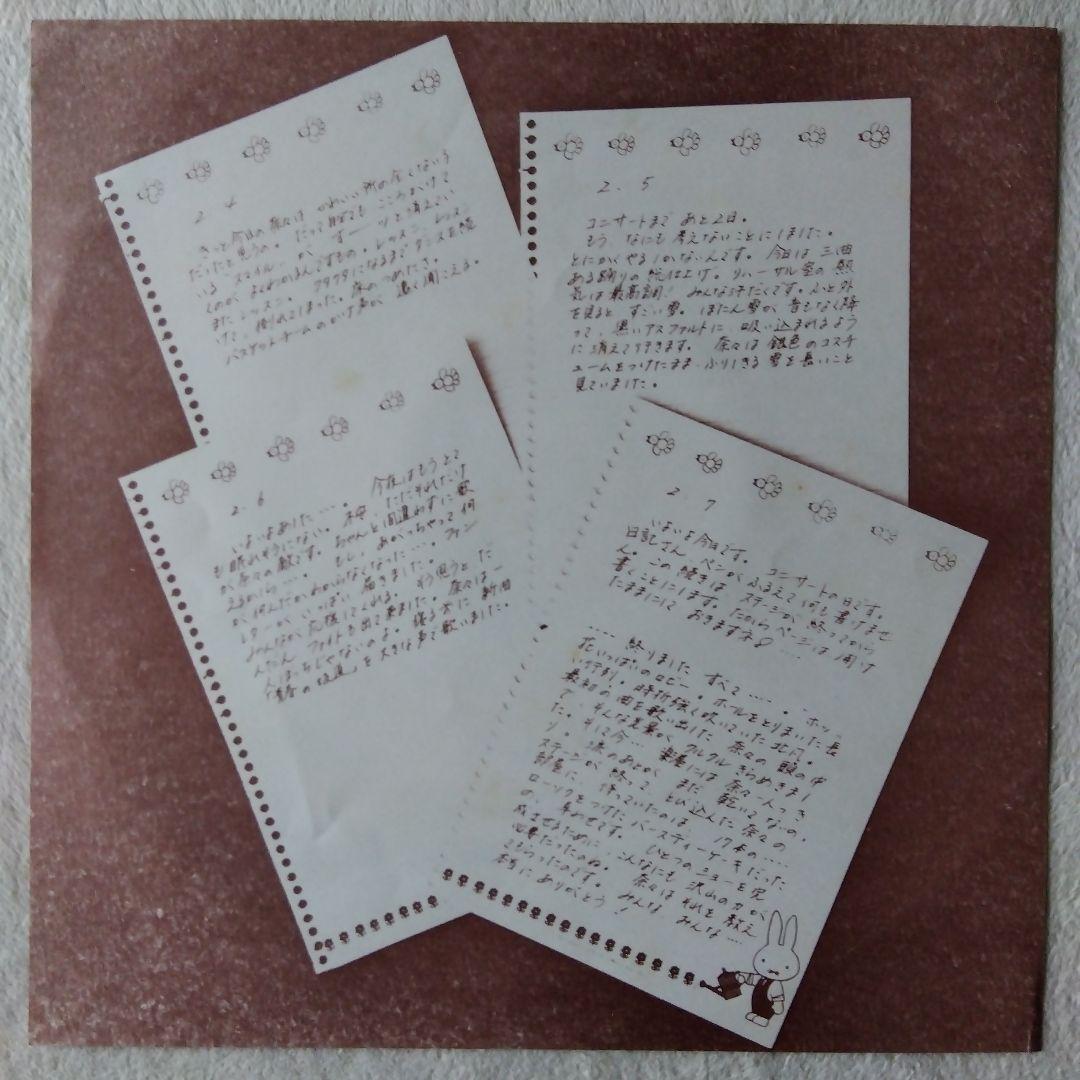 2. 4
きっと今日の奈々は かわいい所の全くないう
だったと思うの。だって自分でも こころがけて
いる "スマイル" が すーーッと消えてい
くのが よくわかるんですもの。レッスン、レッスン
またレッスン。クタクタになるまでダンスを続
けて、倒れてしまった。床のつめたさ。
バスケットチームのかけ声が 遠く聞こえる。
2. 5
コンサートまで あと2日。
もう、なにも考えないことにしました。
とにかくやるしかないんです。今日は 三曲
ある踊りの 仕上げ。リハーサル室の 熱
気は 最高調! みんな汗だくです。ふと外
を見ると すごい雪。ぼたん雪が 音もなく降
って、黒いアスファルトに、吸い込まれるよう
に 消えて行きます。奈々は 銀色のコスチ
ュームをつけたまま ふりしきる 雪を長いこと
見ていました。
2. 6
いよいよあした‥‥。今夜はもうとて
も眠れそうにない。 ただそれだけ
が奈々の敵です。ちゃんと間違わずに歌
えるかしら‥‥。もし、あがっちゃって 何
がなんだかわからなくなったら‥‥。ファン
レターが いっぱい 届きました。
みんなが応援してくれる。そう思うと だ
んだん ファイトも出て来ました。奈々は一
人ぼっちじゃないのよ。寝る前に 新曲
「青春の坂道」を 大きな声で歌いました。
2. 7
いよいよ今日です。コンサートの日です。
日記さん、ペンが ふるえて何も書けませ
ん。この続きは ステージが 終ってから
書くことにします。だから ページは 開け
たままにして おきますネ
‥‥ 終りました すべて‥‥。ホッ
花いっぱいのロビー。ホールをとりまいた 長
い行列。時折強く吹いていた 北風。
最初の曲を歌い出した 奈々の 頭の中
で、そんな光景が クルクル きらめきまし
た。そして今‥‥ 楽屋には 奈々一人っき
り。涙のあとが まだ 乾いてないの。
ステージが 終って、とび込んだ 奈々の
部屋に、待っていたのは、17本の‥‥
ローソクをつけた バースディーケーキだった
の。幸わせです。ひとつの ショーを 完
成させるために こんなにも 沢山の 力が
必要だったのね。奈々は それを 教え
てもらったのです。みんな みんな‥‥
本当に ありがとう!